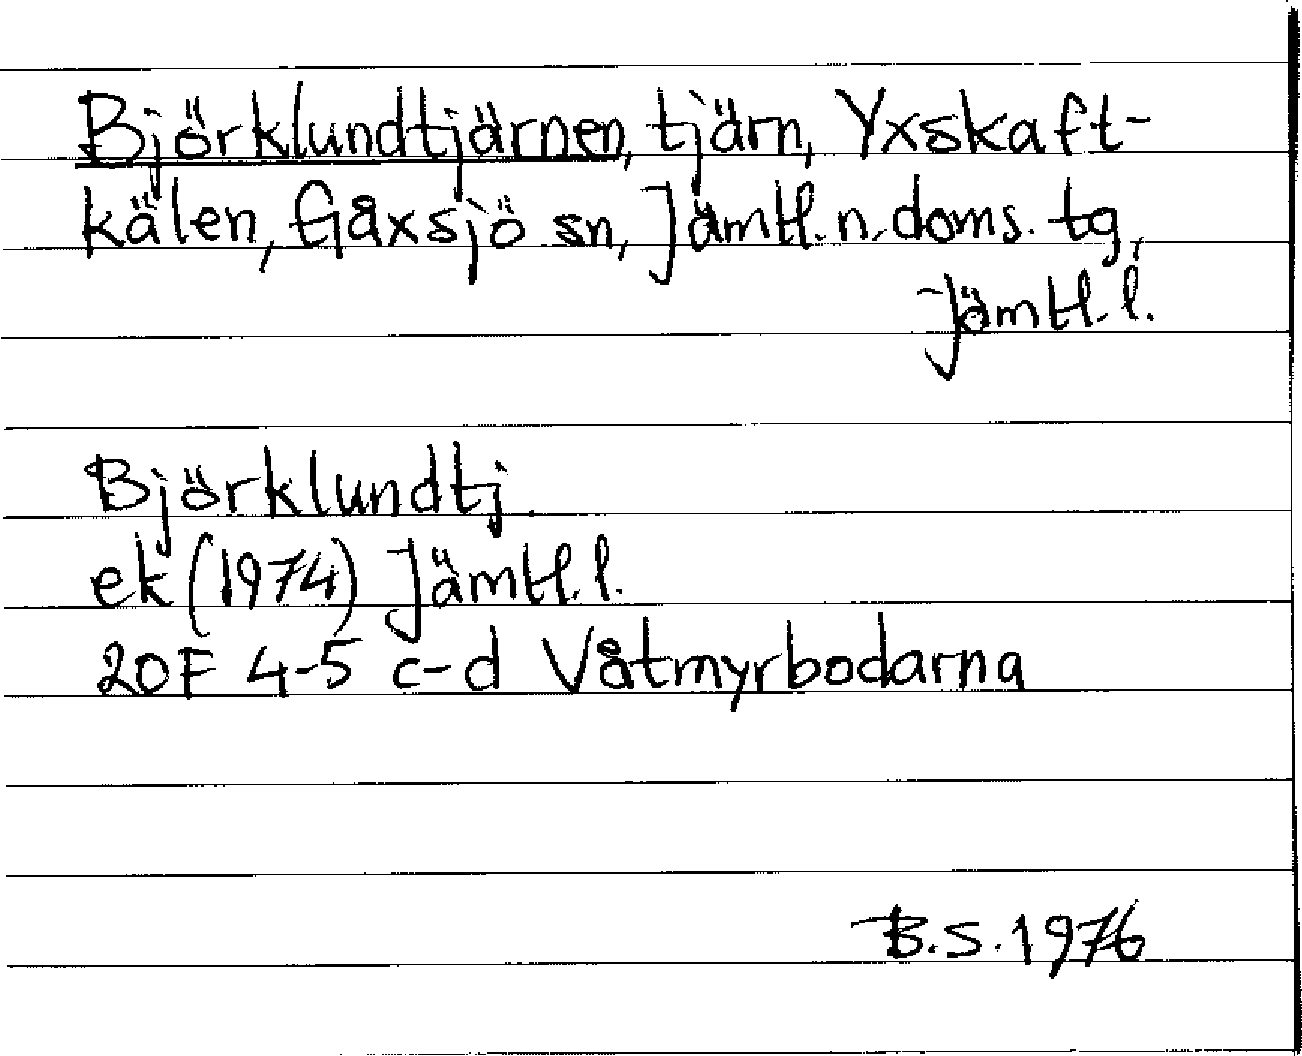 Björklundtjärnen, tjärn, Yxskaft-
kälen, Gåxsjö sn, Jämtl. n. doms. tg,
Jämtl. l.
Björklundtj.
ek (1974) Jämtl. l.
20F 4-5 c-d Våtmyrbodarna
B.S. 1976